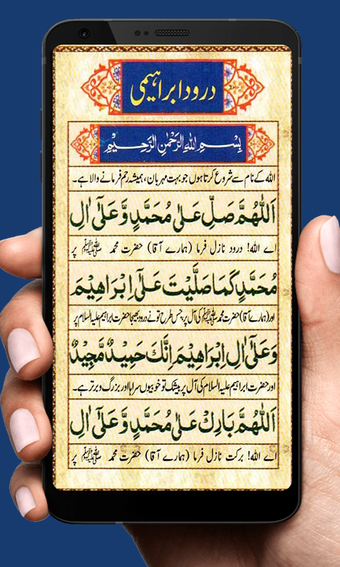 درود ابراہیمی
بِسْمِ اللهِ الرَّحْمٰنِ الرَّحِيْمِ
اللہ کے نام سے شروع کرتا ہوں جو بہت مہربان، ہمیشہ رحم فرمانے والا ہے۔
اَللّٰهُمَّ صَلِّ عَلٰى مُحَمَّدٍ وَّعَلٰٓى اٰلِ
اے اللہ! درود نازل فرما (ہمارے آقا) حضرت محمد ﷺ پر
مُحَمَّدٍ كَمَا صَلَّيْتَ عَلٰٓى اِبْرَاهِيْمَ
اور (ہمارے آقا) حضرت محمد ﷺ کی آل پر جس طرح تو نے درود بھیجا حضرت ابراہیم علیہ السلام پر
وَعَلٰٓى اٰلِ اِبْرَاهِيْمَ اِنَّكَ حَمِيْدٌ مَّجِيْدٌ
اور حضرت ابراہیم علیہ السلام کی آل پر بیشک تو خوبیوں سراہا اور بزرگ و برتر ہے۔
اَللّٰهُمَّ بَارِكْ عَلٰى مُحَمَّدٍ وَّعَلٰٓى اٰلِ
اے اللہ! برکت نازل فرما (ہمارے آقا) حضرت محمد ﷺ پر